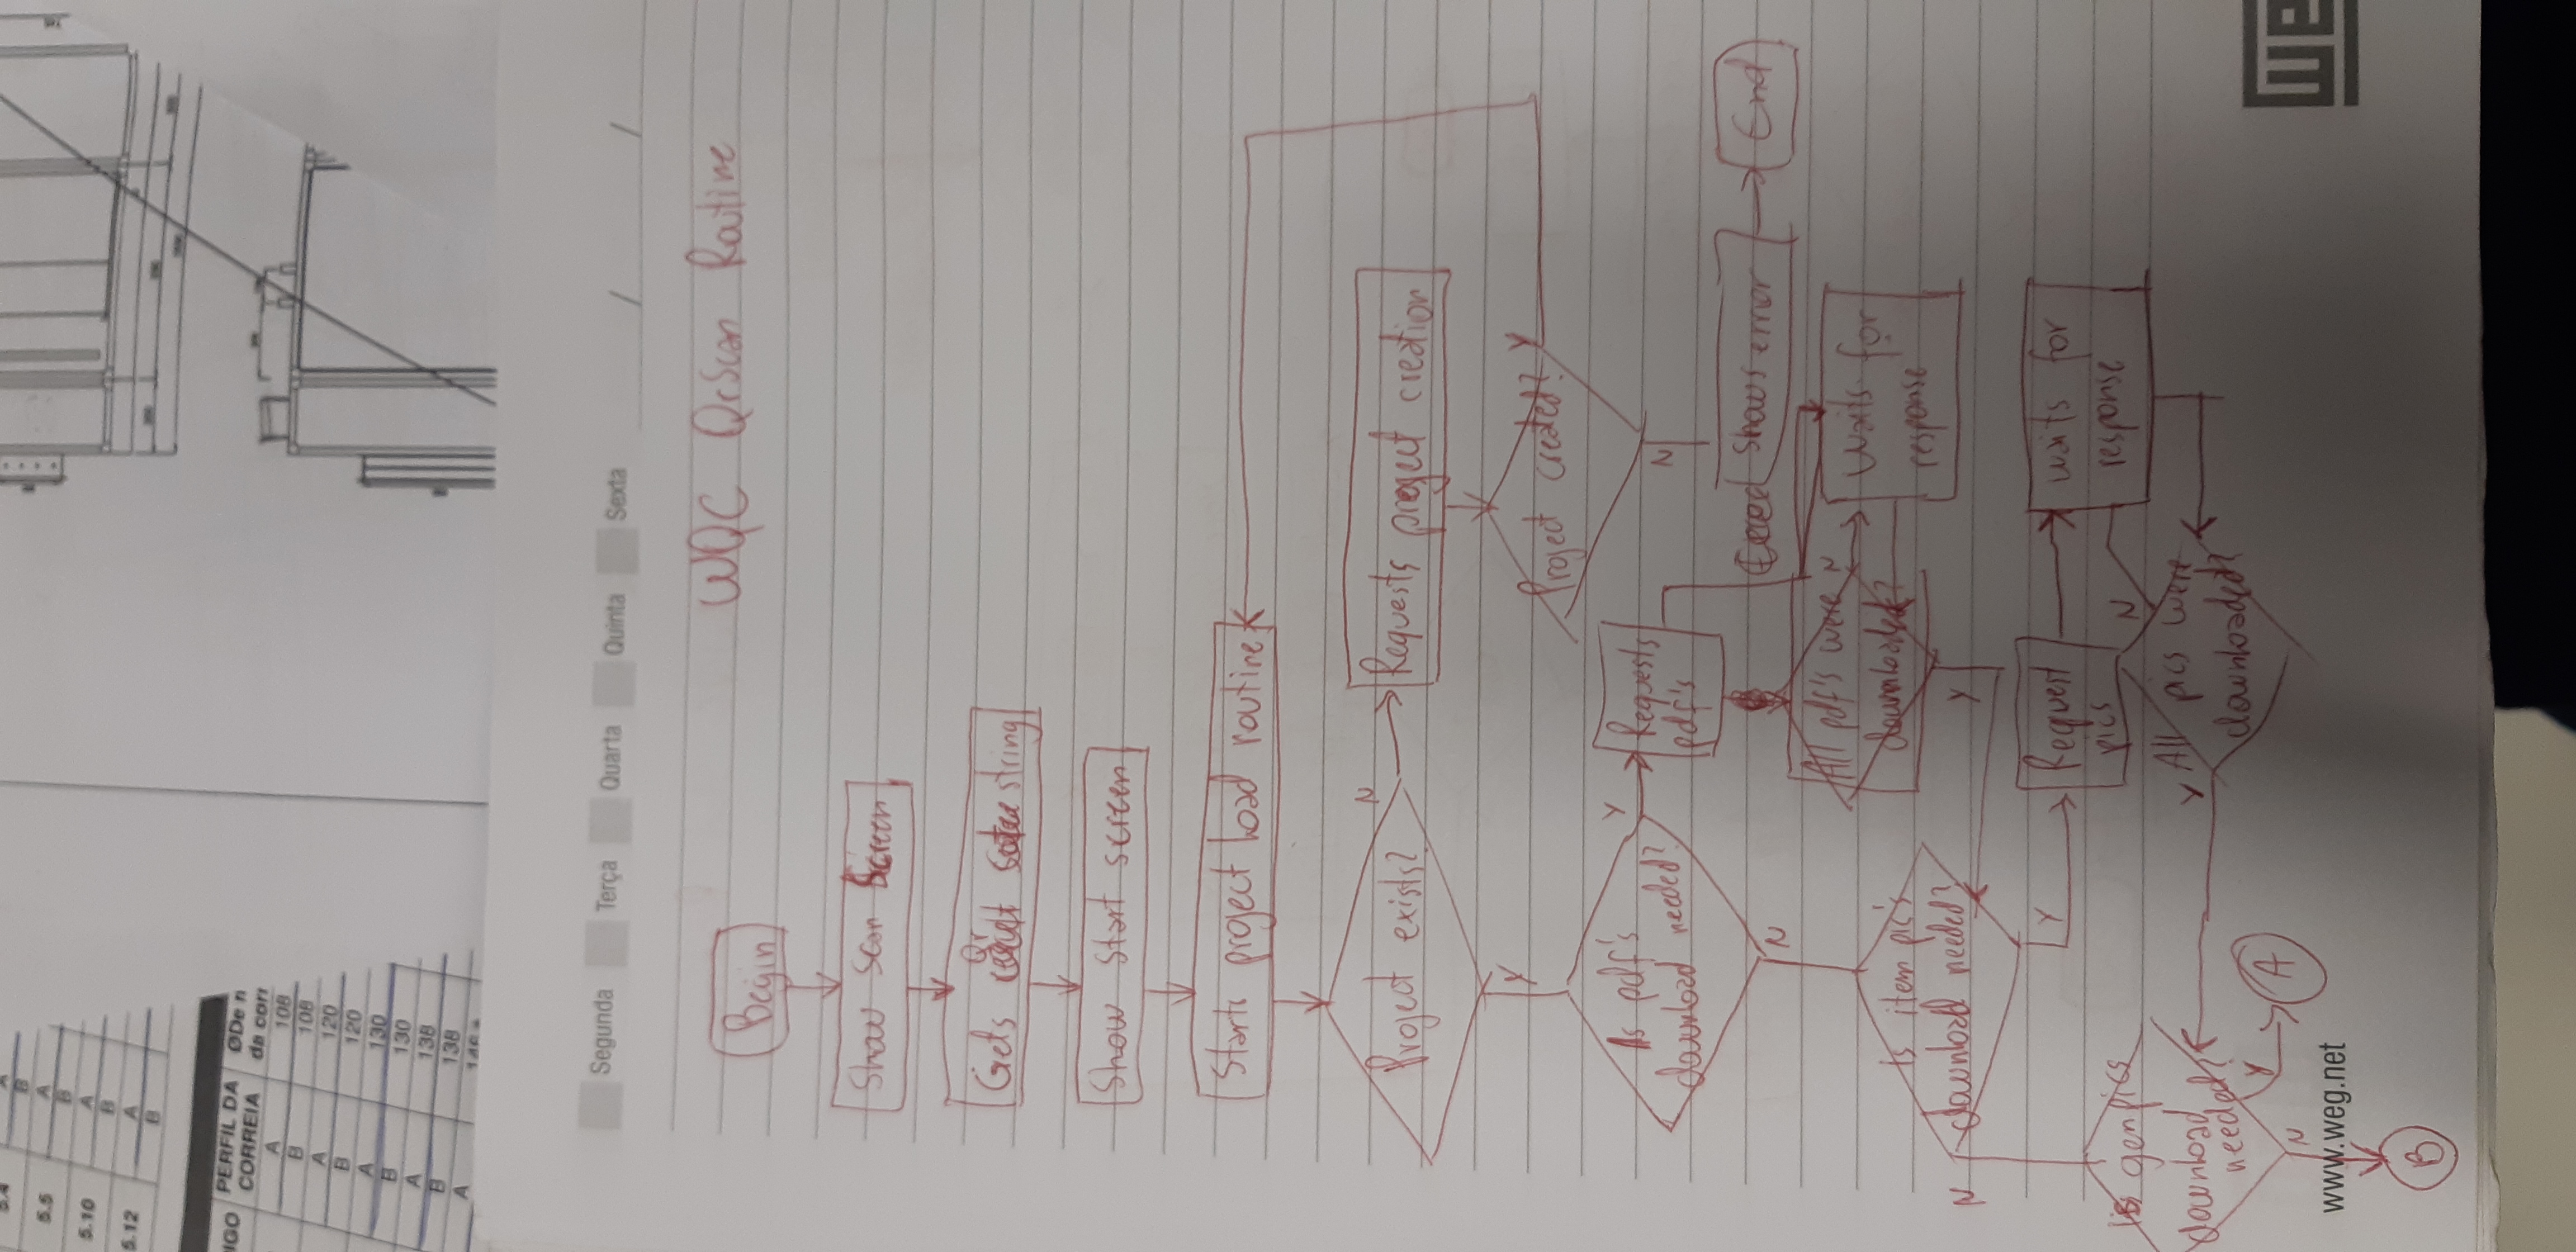 5.4
A
B
5.5
A
B
5.10
A
B
5.12
A
B
IGO PERFIL DA CORREIA ØDe n da corr
A 108
B 108
A 120
B 120
A 130
B 130
A 138
B 138
A 146
Segunda Terça Quarta Quinta Sexta / /
WQC QrScan Routine
Begin
Show Scan Screen
Gets Qr string
Show Start screen
Starts project load routine
Project exists?
N
Requests project creation
Y
Project created?
Y
Is pdf's
download needed?
Y
Requests
pdf's
N
N
Shows error
End
All pdf's were
downloaded?
N
Waits for
response
Is item pic's
download needed?
N
Y
Y
Request
pics
waits for
response
Is gen pics
download
needed?
N
Y All pics were
downloaded?
Y
A
N
www.weg.net
WE
B